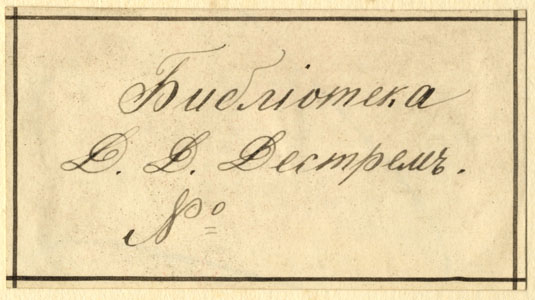 Библіотека
Д. Д. Дестремъ.
№